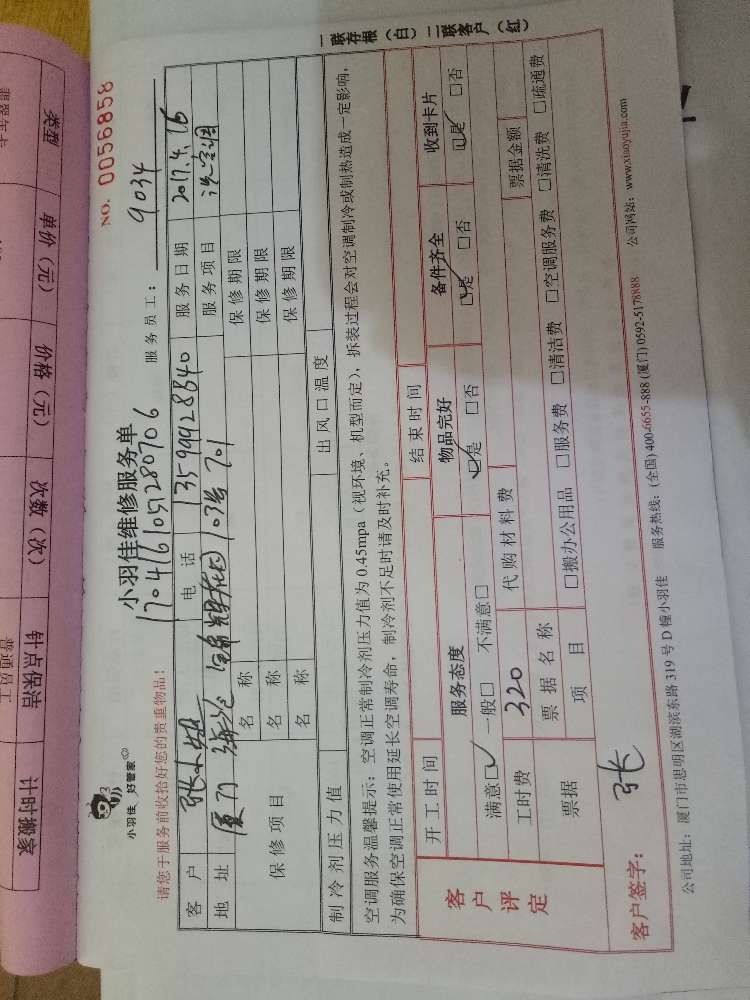 小羽佳 好管家
小羽佳维修服务单
NO. 0056858
1704161051280906
服务员工: 9034
请您于服务前收拾好您的贵重物品!
客户 电话 13599928340 服务日期 2017.4.16
地址 厦门 103号701 服务项目 洗空调
保修项目 名称 保修期限
名称 保修期限
名称 保修期限
制冷剂压力值 出风口温度
空调服务温馨提示:空调正常制冷剂压力值为0.45mpa(视环境、机型而定),拆装过程会对空调制冷或制热造成一定影响,
为确保空调正常使用延长空调寿命,制冷剂不足时请及时补充。
客户评定
开工时间 结束时间
服务态度 物品完好 备件齐全 收到卡片
满意☑ 一般□ 不满意□ ☑是 □否 ☑是 □否 ☑是 □否
工时费 320 代购材料费
票据 票据名称 票据金额
项目 □搬办公用品 □服务费 □清洁费 □空调服务费 □清洗费 □疏通费
客户签字: 张
公司地址:厦门市思明区湖滨东路319号D幢小羽佳 服务热线:(全国)400-6655-888 (厦门)0592-5178888 公司网站:www.xiaoyujia.com
一联存根(白) 二联客户(红)
类型 单价(元) 价格(元) 次数(次) 钟点保洁 计时搬家
普通员工